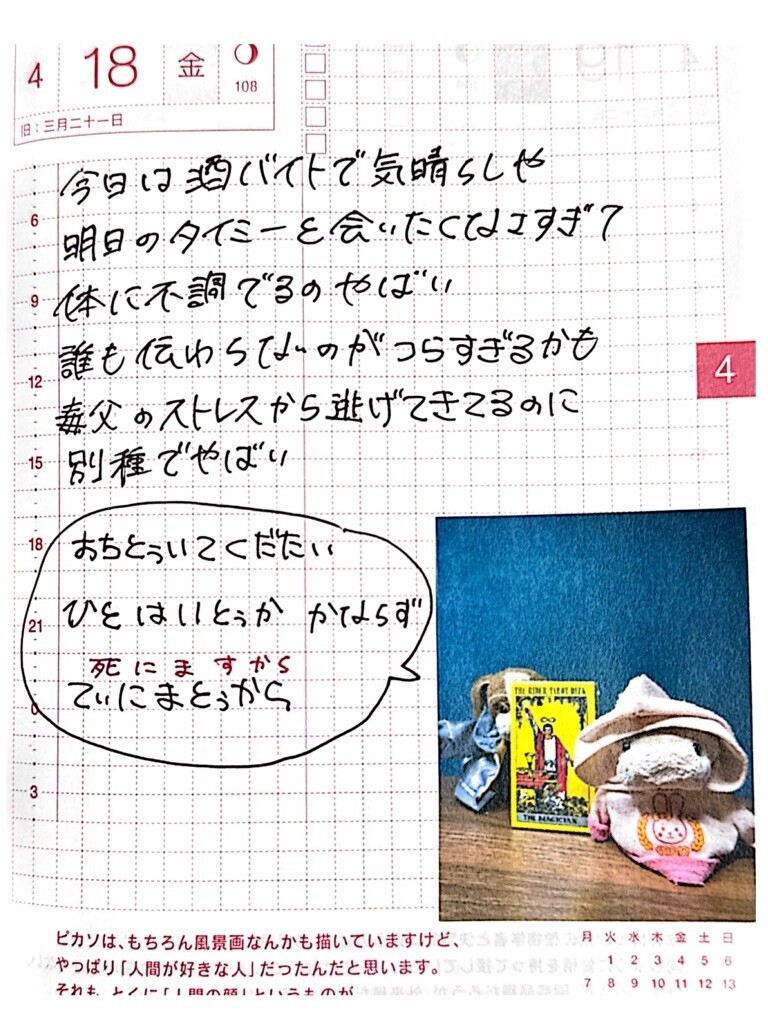 4 18 金 108
旧:三月二十一日
今日は酒バイトで気晴らしや
6
明日のタイミーを会いたくなさすぎて
9
体に不調でるのやばい
誰も伝わらないのがつらすぎるかも
12
4
毒父のストレスから逃げてきてるのに
15
別種でやばい
18
おちとぅいてくだたい
21
ひとはいとぅか かならず
死にますから
てぃにまとぅから
0
3
THE RIDER TAROT DECK
THE MAGICIAN
ピカソは、もちろん風景画なんかも描いていますけど、
やっぱり「人間が好きな人」だったんだと思います。
それも、とくに「人間の顔」というものが
月 火 水 木 金 土 日
1 2 3 4 5 6
7 8 9 10 11 12 13